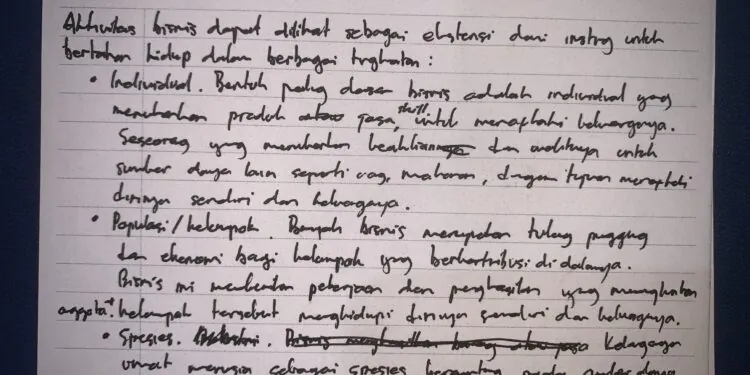 Aktivitas bisnis dapat dilihat sebagai ekstensi dari insting untuk
bertahan hidup dalam berbagai tingkatan :
• Individual. Bentuk paling dasar bisnis adalah individual yang
menukarkan produk atau jasa, skill, untuk menafkahi keluarganya.
Seseorang yang menukarkan keahliannya dan waktunya untuk
sumber daya lain seperti uang, makanan, dengan tujuan menafkahi
dirinya sendiri dan keluarganya.
• Populasi/kelompok. Banyak bisnis merupakan tulang punggung
dan ekonomi bagi kelompok yang berkontribusi di dalamnya.
Bisnis ini memberikan pekerjaan dan penghasilan yang memungkinkan
anggota" kelompok tersebut menghidupi dirinya sendiri dan keluarganya.
• Spesies. Bisnis menghasilkan barang atau jasa
umat manusia sebagai spesies bergantung pada